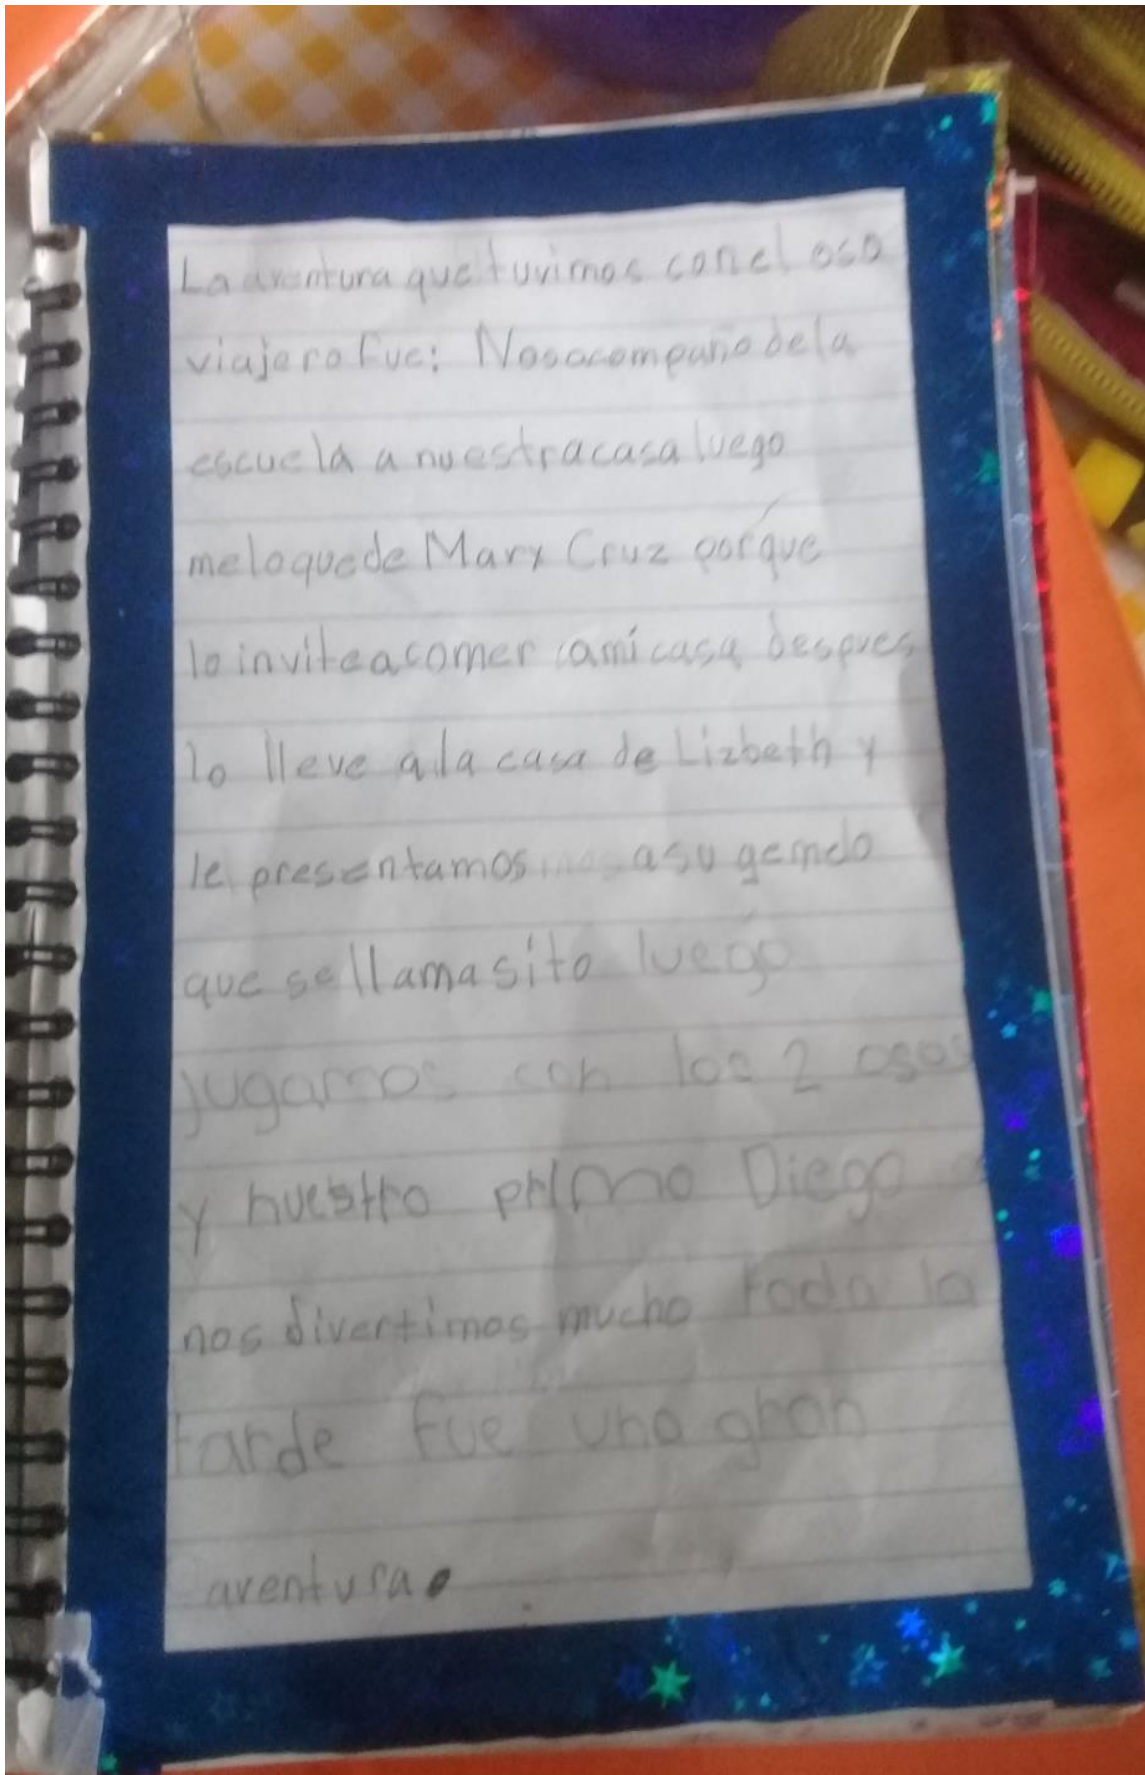 La aventura que tuvimos con el oso
viajero fue: Nos acompaño de la
escuela a nuestra casa luego
me lo quede Mary Cruz porque
lo invite a comer a mi casa despues
lo lleve a la casa de Lizbeth y
le presentamos a su gemelo
que se llama sito luego
jugamos con los 2 osos
y nuestro primo Diego
nos divertimos mucho toda la
tarde fue una gran
aventura.